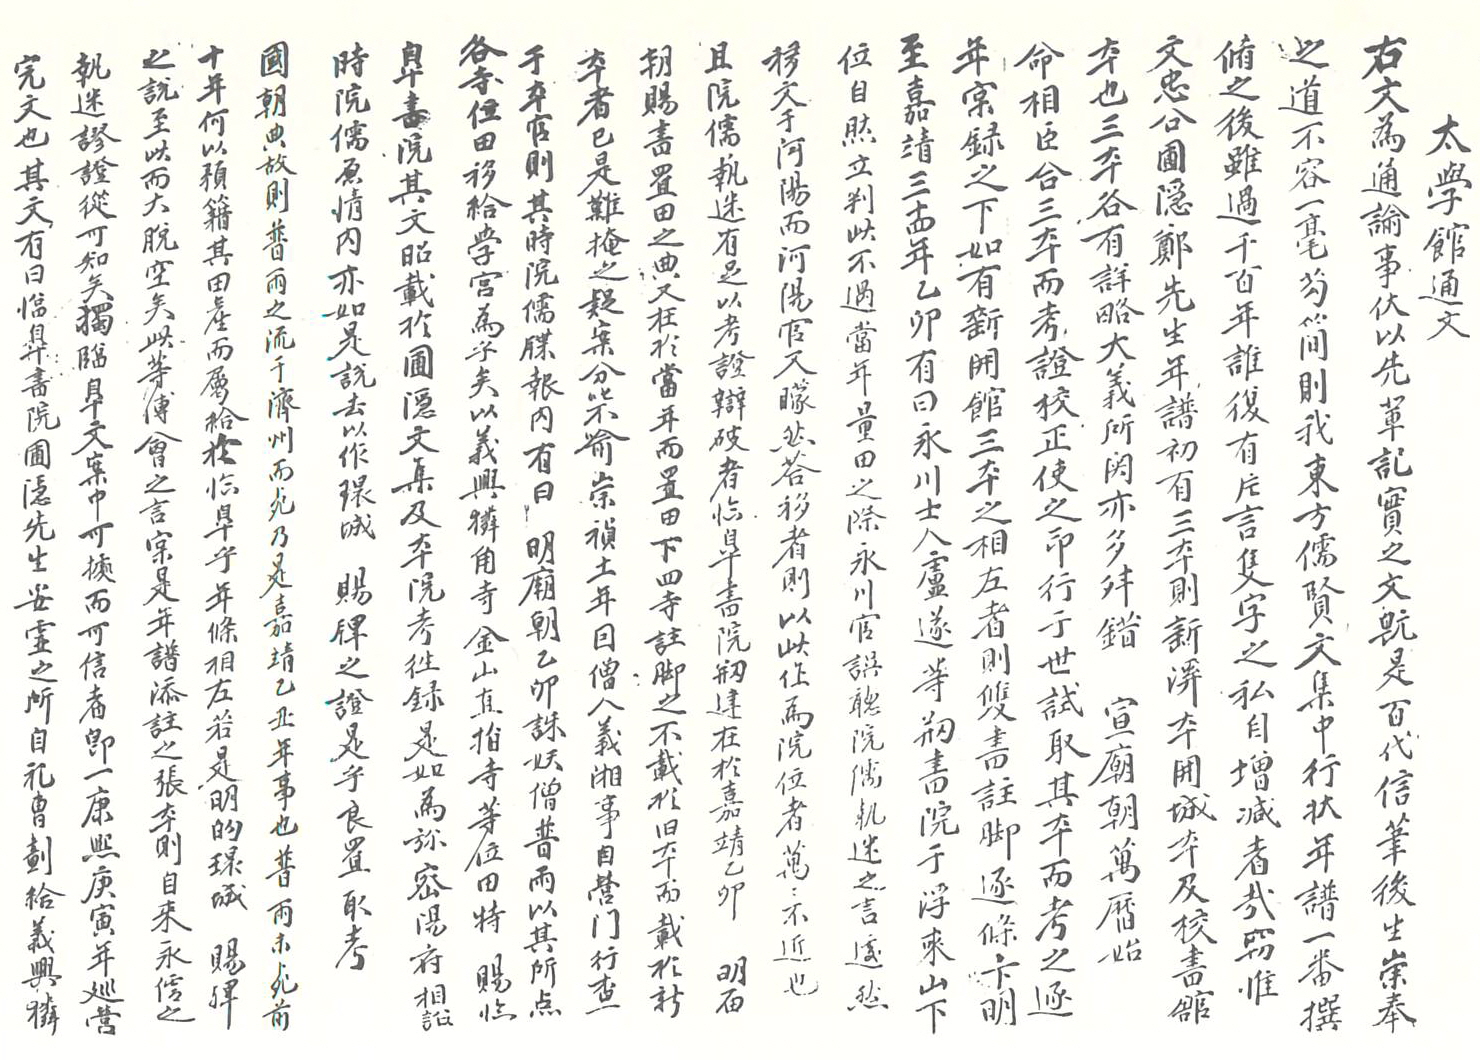 太學館通文
右文為通諭事伏以先軰記實之文旣是百代信筆後生崇奉
之道不容一毫芶簡則我東方儒賢文集中行狀年譜一番撰
脩之後雖過千百年誰復有片言隻字之私自增减者哉竊惟
文忠公圃隱鄭先生年譜初有三夲則新溪夲開城夲及校書舘
夲也三夲各有詳略大義所関亦多舛錯 宣廟朝萬曆始
命相臣合三夲而考證校正使之印行于世試取其夲而考之逐
年宲録之下如有新開館三夲之相左者則雙書註脚逐條卞明
至嘉靖三十四年乙卯有曰永川士人盧遂等剏書院于浮來山下
位自然立判此不過當年量田之際永川官誤聽院儒執迷之言遂然
移文于河陽而河陽官又矇然答移者則以此作為院位者萬〻不近也
且院儒執迷有足以考證辯破者臨臯書院剏建在於嘉靖乙卯 明宙
朝賜書置田之典又在於當年而置田下四寺註脚之不載於旧夲而載於新
夲者已是難掩之疑案分叱不喻崇禎土年因僧人義湘事自營门行查
于夲官則其時院儒牒報内有曰 明廟朝乙卯誅妖僧普雨以其所点
各寺位田移給学宮為乎矣以義興獜角寺金山直指寺等位田特 賜臨
臯書院其文昭載於圃隱文集及夲院考徃録是如為旀密陽府相訟
時院儒原情内亦如是說去以作環城 賜牌之證是乎良置取考
國朝典故則普雨之流于濟州而死乃是嘉靖乙丑年事也普雨未死前
十年何以預籍其田産而屬給於臨臯乎年條相左若是明的環城 賜牌
之說至此而大脫空矣此等傅會之言宲是年譜添註之張夲則自来永儒之
執迷謬證從可知矣獨臨臯文案中可據而可信者卽一康熙庚寅年巡營
完文也其文有曰臨臯書院圃隱先生妥靈之所自礼曹劃給義興獜